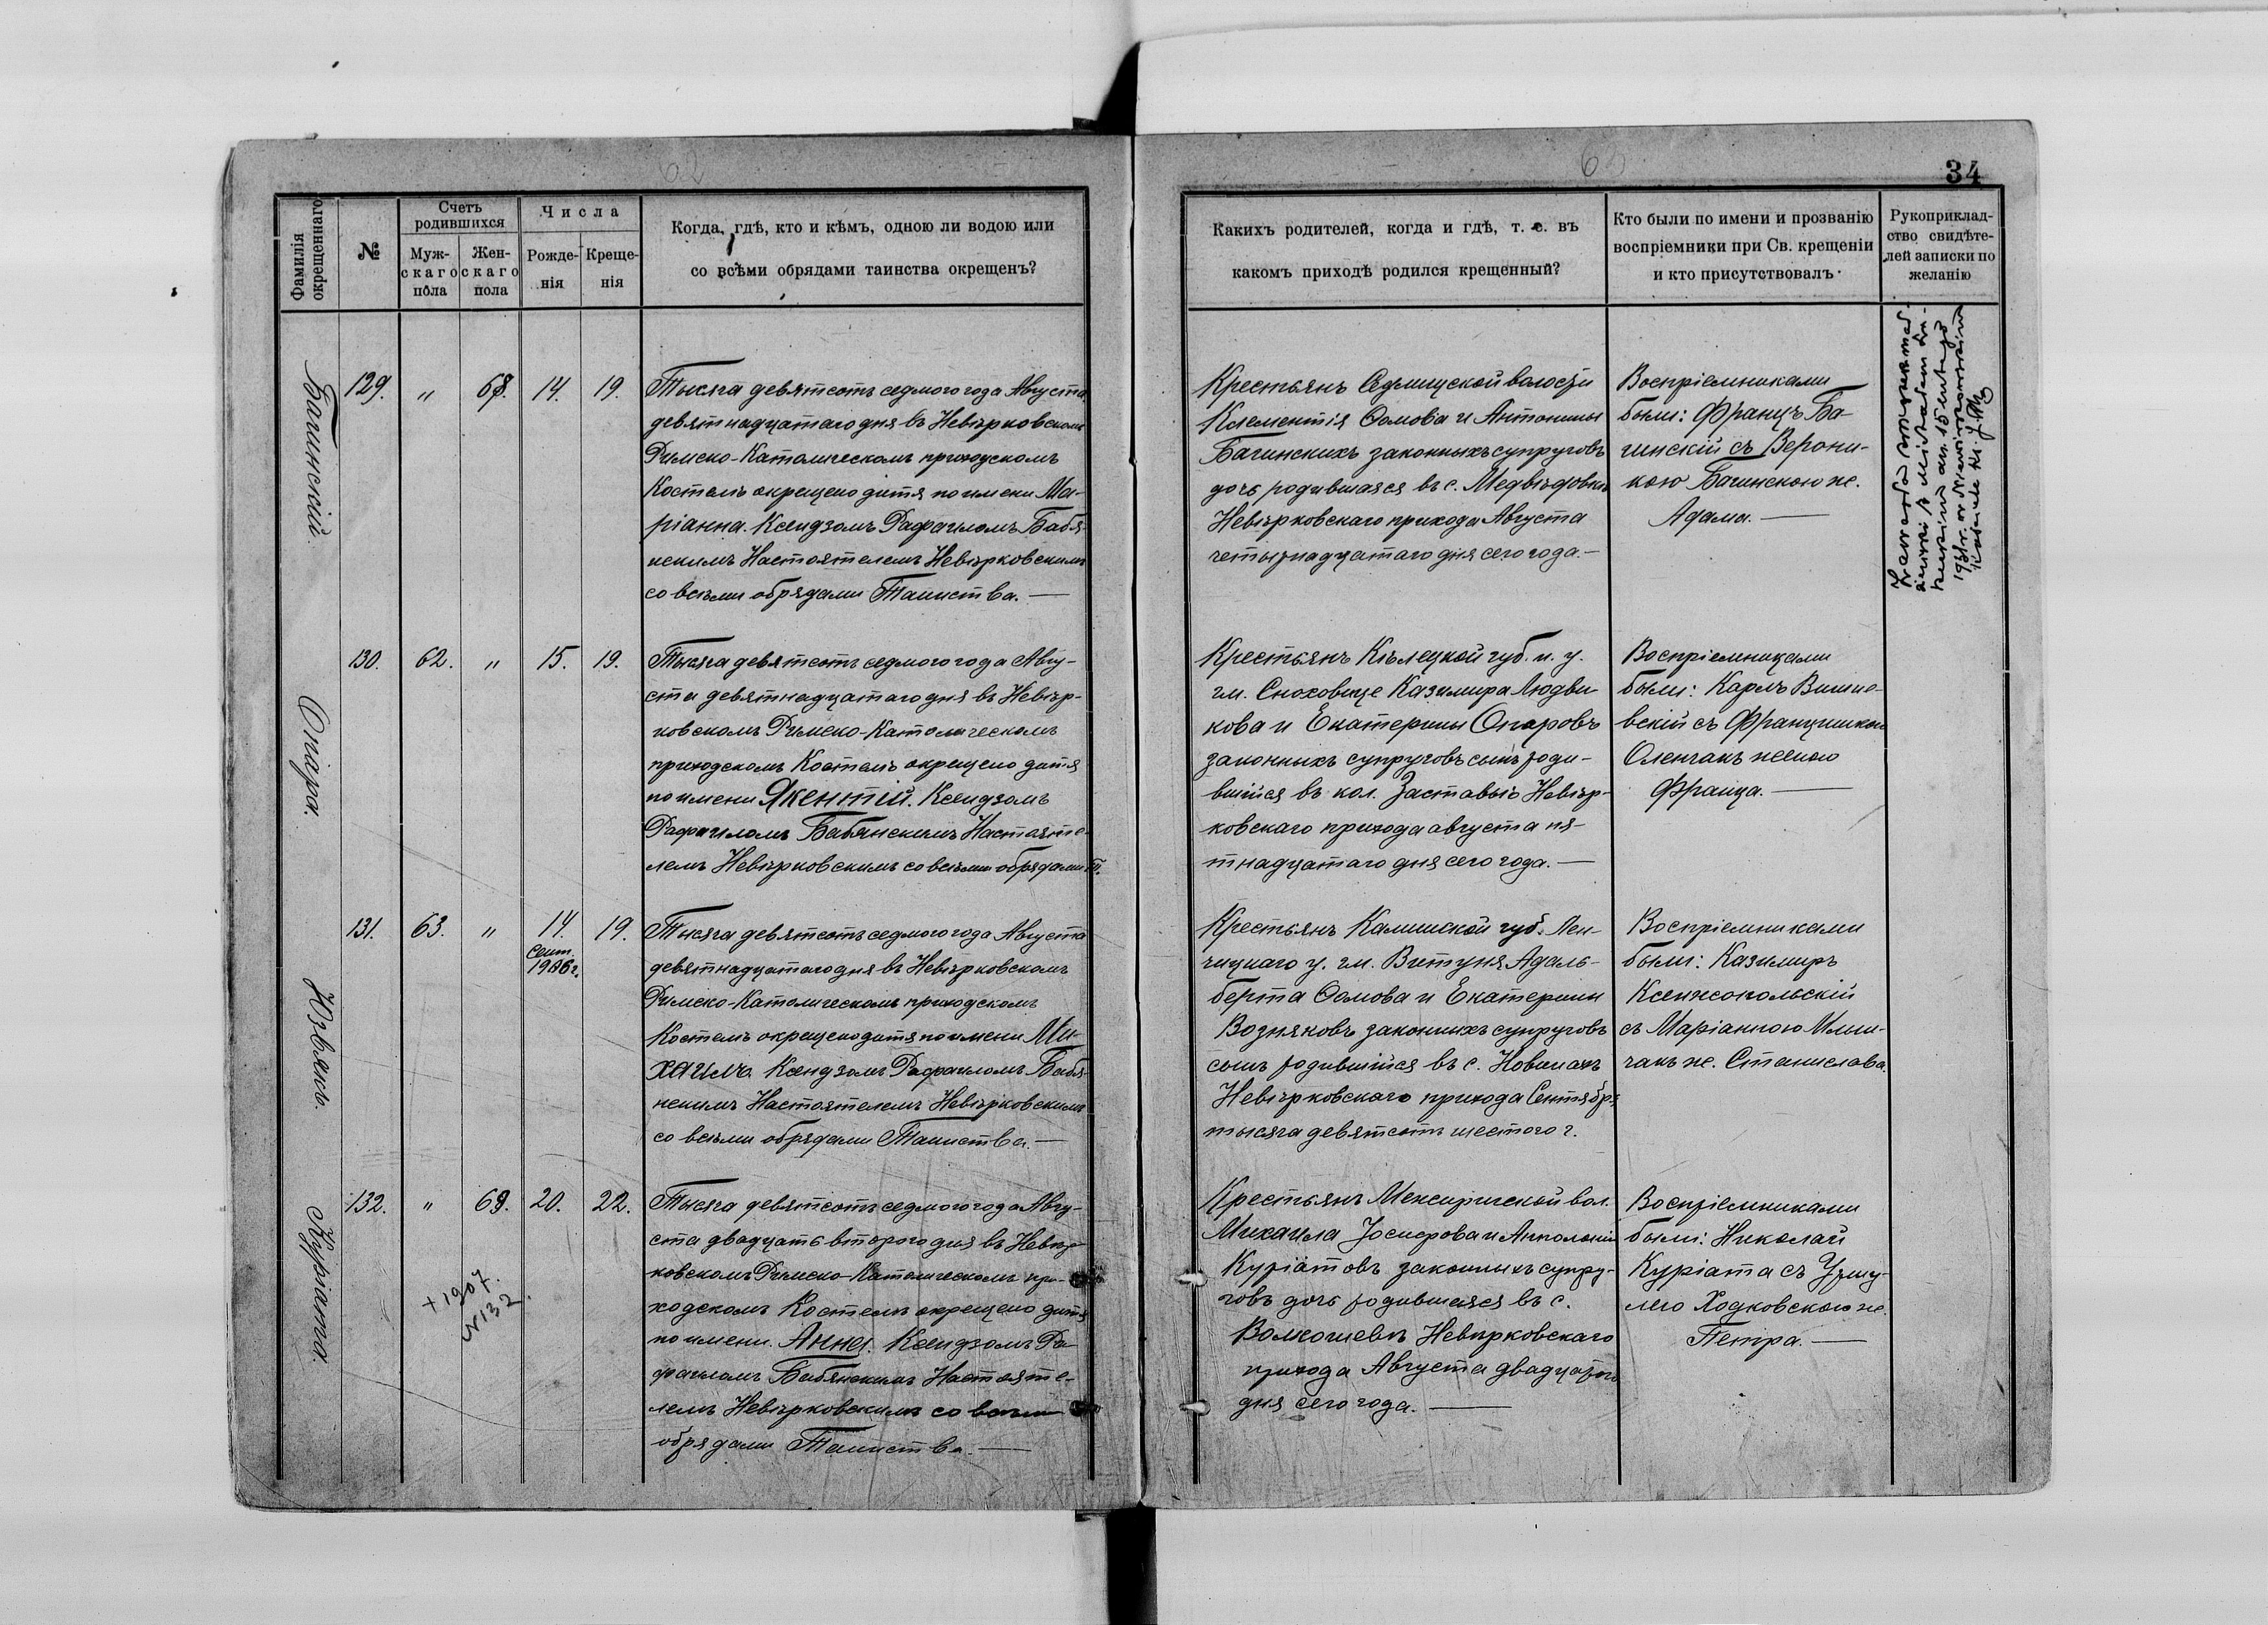 62
63
34
Фамилія окрещеннаго
№
Счетъ родившихся
Муж-
скаго
пола
Жен-
скаго
пола
Числа
Рожде-
нія
Креще-
нія
Когда, гдѣ, кто и кѣмъ, одною ли водою или
со всѣми обрядами таинства окрещенъ?
Какихъ родителей, когда и гдѣ, т. е. въ
какомъ приходѣ родился крещенный?
Кто были по имени и прозванію
воспріемники при Св. крещеніи
и кто присутствовалъ.
Рукоприклад-
ство свидѣте-
лей записки по
желанію
Багинскій.
129. " 68. 14. 19.
Тысяча девятсотъ седмого года Августа
девятнадцатаго дня въ Невѣрковскомъ
Римско-Католическомъ приходскомъ
Костелѣ окрещено дитя по имени Ма-
ріанна. Ксендзомъ Рафаиломъ Бабя-
нскимъ Настоятелемъ Невѣрковскимъ
со всѣми обрядами Таинства. —
Крестьянъ Седлищской волости
Клементія Ѳомова и Антонины
Багинскихъ законныхъ супруговъ
дочь родившаяся въ с. Медвѣдовкѣ
Невѣрковскаго прихода Августа
четырнадцатаго дня сего года. —
Воспріемниками
были: Францъ Ба-
гинскій съ Верони-
кою Багинскою ж.
Адама. —
Опара.
130. 62. " 15. 19.
Тысяча девятсотъ седмого года Авгу-
ста девятнадцатаго дня въ Невѣр-
ковскомъ Римско-Католическомъ
приходскомъ Костелѣ окрещено дитя
по имени Якентій. Ксендзомъ
Рафаиломъ Бабянскимъ Настояте-
лемъ Невѣрковскимъ со всѣми обрядами Т.
Крестьянъ Кѣлецкой губ. и. у.
гм. Сноховице Казимира Людви-
кова и Екатерины Опаровъ
законныхъ супруговъ сынъ роди-
вшійся въ кол. Заставье Невѣр-
ковскаго прихода августа пя-
тнадцатаго дня сего года. —
Воспріемниками
были: Карлъ Вишне-
вскій съ Францишкою
Оленчакъ женою
Франца. —
Возьякъ.
131. 63. " 14. 19.
Сент.
1906 г.
Тысяча девятсотъ седмого года Августа
девятнадцатаго дня въ Невѣрковскомъ
Римско-Католическомъ приходскомъ
Костелѣ окрещено дитя по имени Ми-
хаилъ. Ксендзомъ Рафаиломъ Бабя-
нскимъ Настоятелемъ Невѣрковскимъ
со всѣми обрядами Таинства. —
Крестьянъ Калишской губ. Лен-
чицкаго у. гм. Витуня Адаль-
берта Ѳомова и Екатерины
Возняковъ законныхъ супруговъ
сынъ родившійся въ с. Новинахъ
Невѣрковскаго прихода Сентября
тысяча девятсотъ шестого г.
Воспріемниками
были: Казимиръ
Ксенжопольскій
съ Маріанною
ж. Станислава.
Куріата.
132. " 69. 20. 22.
+ 1907.
N 132.
Тысяча девятсотъ седмого года Авгу-
ста двадцать второго дня въ Невѣр-
ковскомъ Римско-Католическомъ при-
ходскомъ Костелѣ окрещено дитя
по имени. Анна. Ксендзомъ Ра-
фаиломъ Бабянскимъ Настояте-
лемъ Невѣрковскимъ со всѣми
обрядами Таинства. —
Крестьянъ Межиричской вол.
Михаила Іосифова и Апполоніи
Куріатовъ законныхъ супру-
говъ дочь родившаяся въ с.
Волкошевѣ Невѣрковскаго
прихода Августа двадцатого
дня сего года. —
Воспріемниками
были: Николай
Куріата съ Уршу-
лею Ходковскою ж.
Петра. —